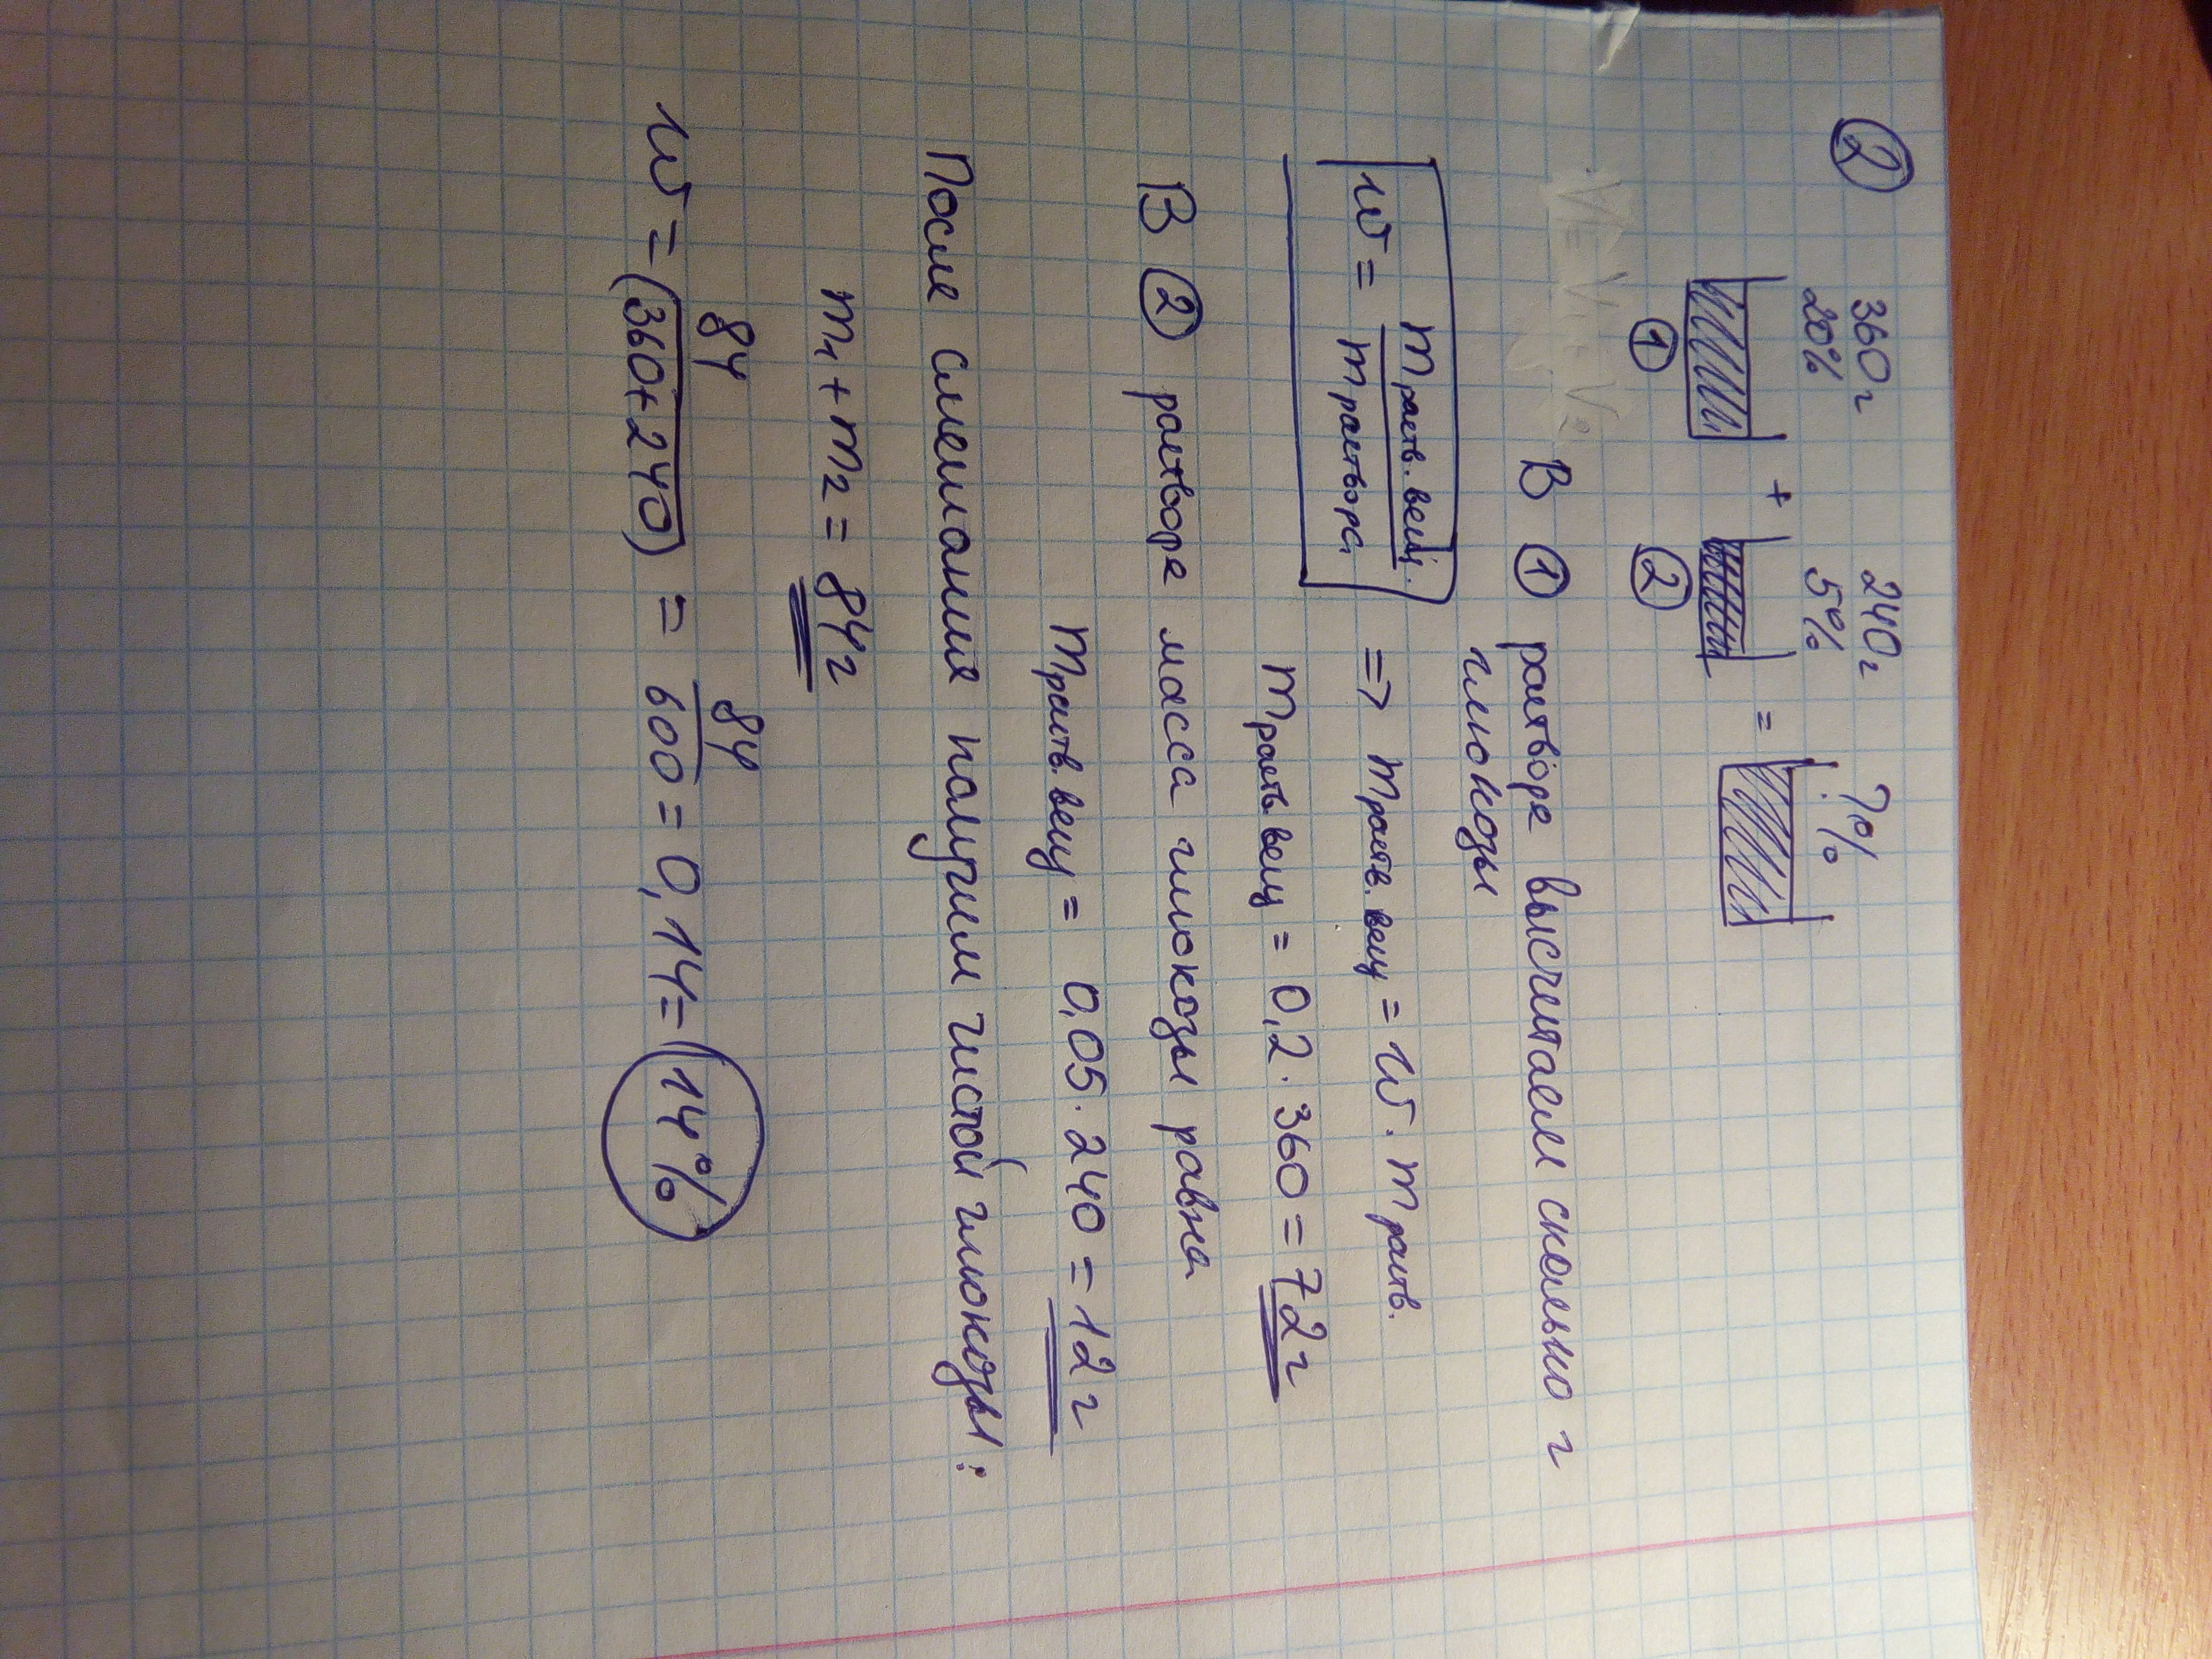 ②
360г 240г ?%
20% 5%
+ =
① ②
В ① растворе высчитаем сколько г
глюкозы
w = m раств. вещ. / m раствора => m раств. вещ = w · m раств.
m раств. вещ = 0,2 · 360 = 72г
В ② растворе масса глюкозы равна
m раств. вещ = 0,05 · 240 = 12г
После смешания получим чистой глюкозы:
m₁ + m₂ = 84г
w = 84 / (360+240) = 84 / 600 = 0,14 = 14%